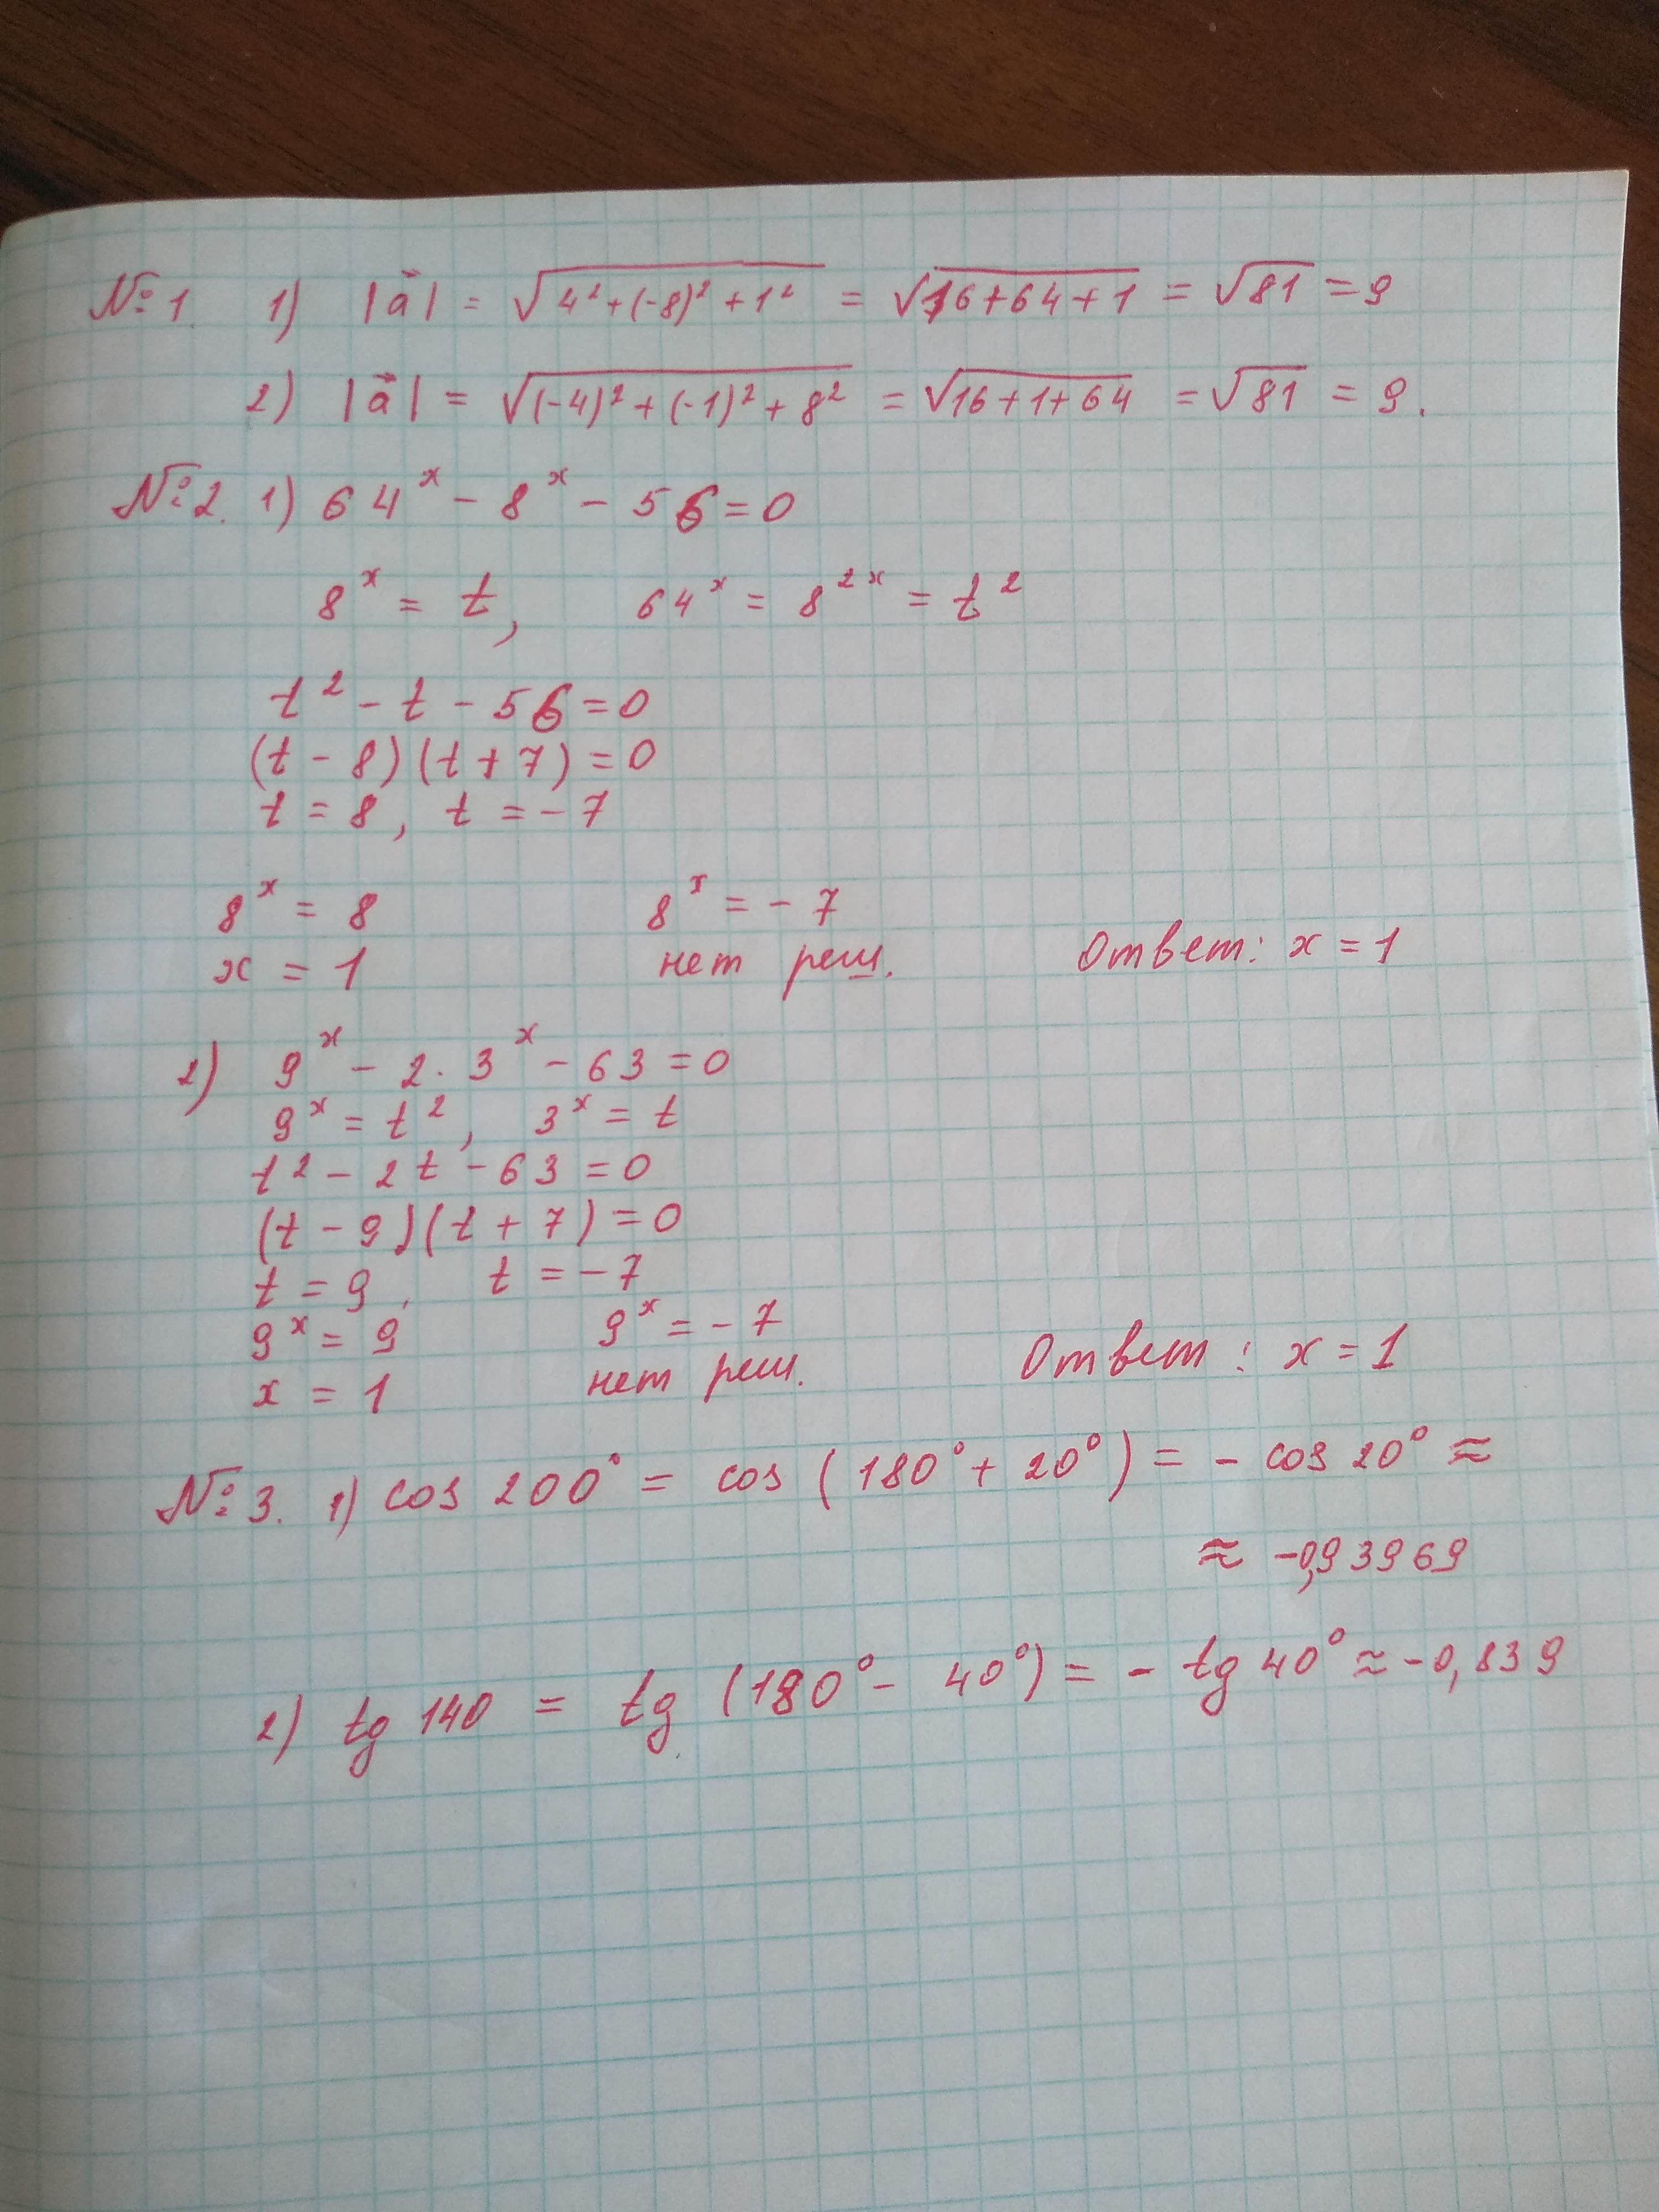 №1. 1) |a⃗| = √(4² + (-8)² + 1²) = √(16 + 64 + 1) = √81 = 9
2) |a⃗| = √((-4)² + (-1)² + 8²) = √(16 + 1 + 64) = √81 = 9.
№2. 1) 64ˣ - 8ˣ - 56 = 0
8ˣ = t, 64ˣ = 8²ˣ = t²
t² - t - 56 = 0
(t - 8)(t + 7) = 0
t = 8, t = -7
8ˣ = 8 8ˣ = -7
x = 1 нет реш. Ответ: x = 1
2) 9ˣ - 2·3ˣ - 63 = 0
9ˣ = t², 3ˣ = t
t² - 2t - 63 = 0
(t - 9)(t + 7) = 0
t = 9, t = -7
9ˣ = 9 9ˣ = -7
x = 1 нет реш. Ответ: x = 1
№3. 1) cos 200° = cos (180° + 20°) = - cos 20° ≈
≈ -0,93969
2) tg 140 = tg (180° - 40°) = - tg 40° ≈ -0,839